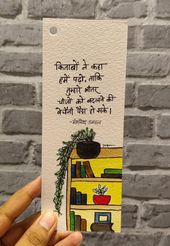 किताबों ने कहा
हमें पढ़ो, ताकि
तुम्हारे भीतर
चीज़ों को बदलने की
बेचैनी पैदा हो सके।